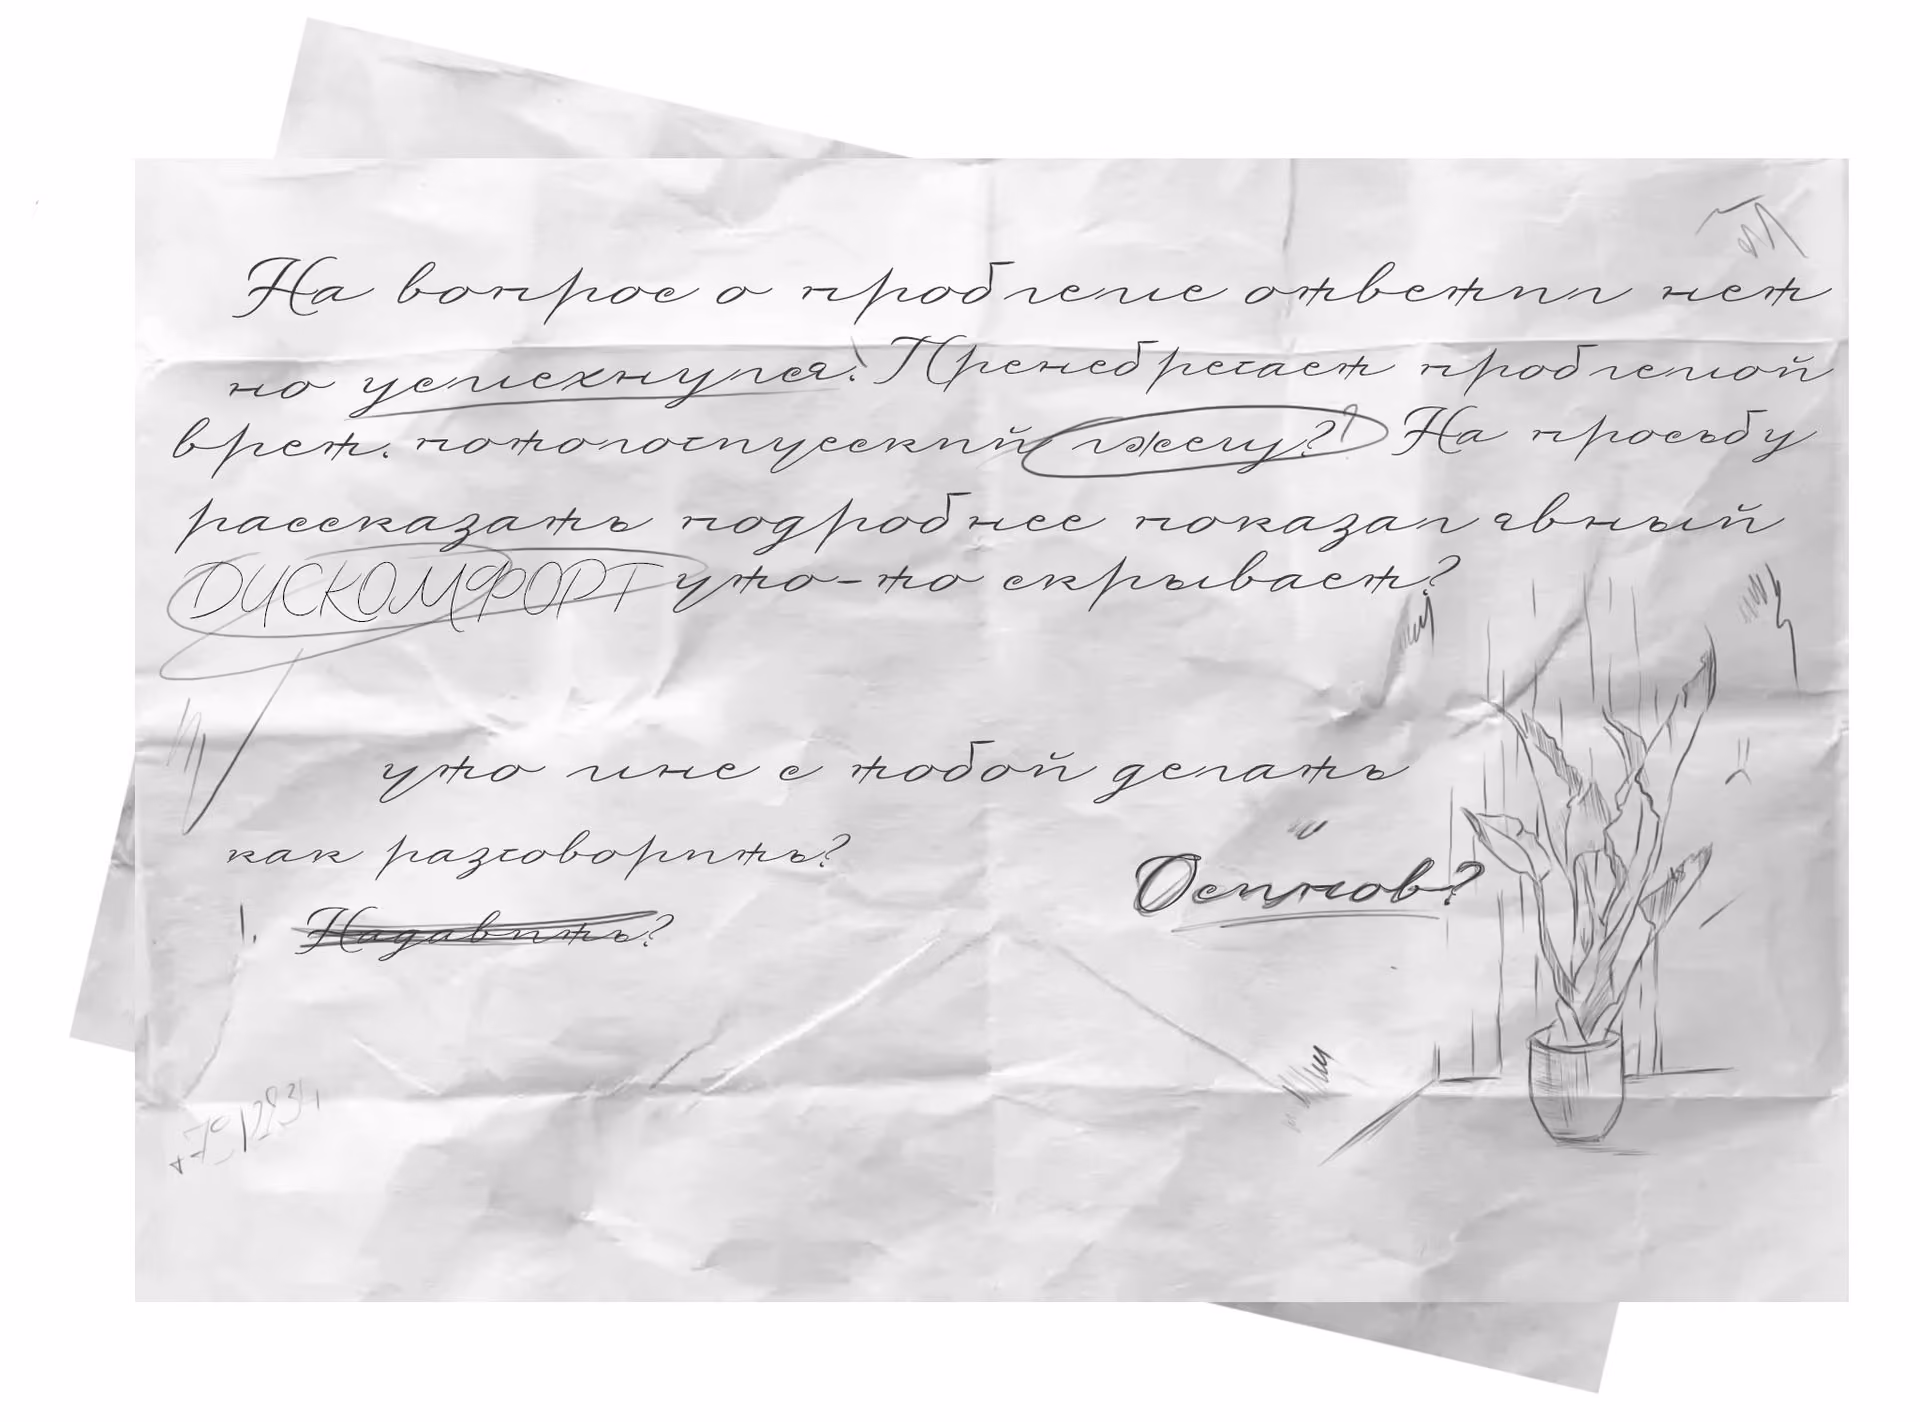 На вопрос о проблеме ответил нет
но усмехнулся. Пренебрегает проблемой
врет. потологический лжец? На просьбу
рассказать подробнее показал явный
ДИСКОМФОРТ что-то скрывает?
что мне с тобой делать
как разговорить?
Осипов?
Надавить?